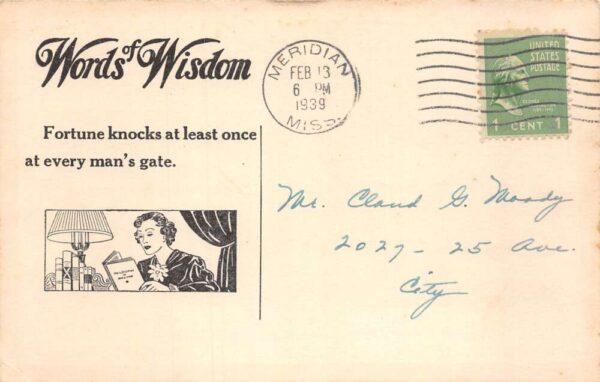 Words of Wisdom
Fortune knocks at least once
at every man's gate.
MERIDIAN
FEB 13
6 PM
1939
MISS.
UNITED
STATES
POSTAGE
1 CENT 1
Mr. Claud G. Moody
2027 - 25 Ave.
City